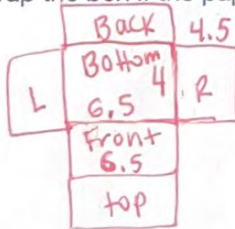 Back 4.5
Bottom
4
L R
6.5
Front
6.5
top